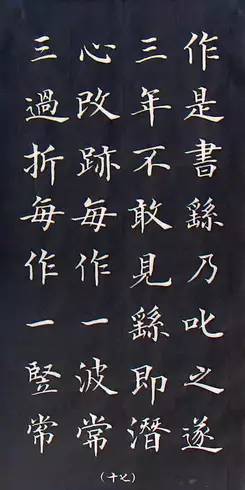 作是書繇乃叱之遂
三年不敢見繇即潛
心改跡每作一波常
三過折每作一豎常
(十七)